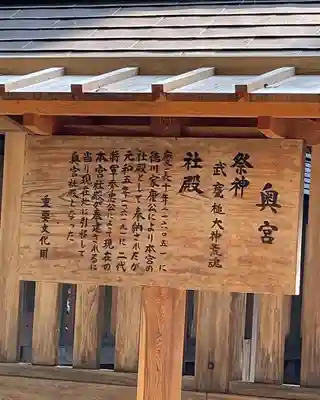 奥宮
祭神
武甕槌大神荒魂
社殿
慶長十年(一六〇五)に
徳川家康公により本宮の
社殿として奉納されたが
元和五(一六一九)に二代
将軍秀忠公によって現在の
本宮社殿が奉建されるに
当り現在地に引移して
奥宮社殿となった
重要文化財